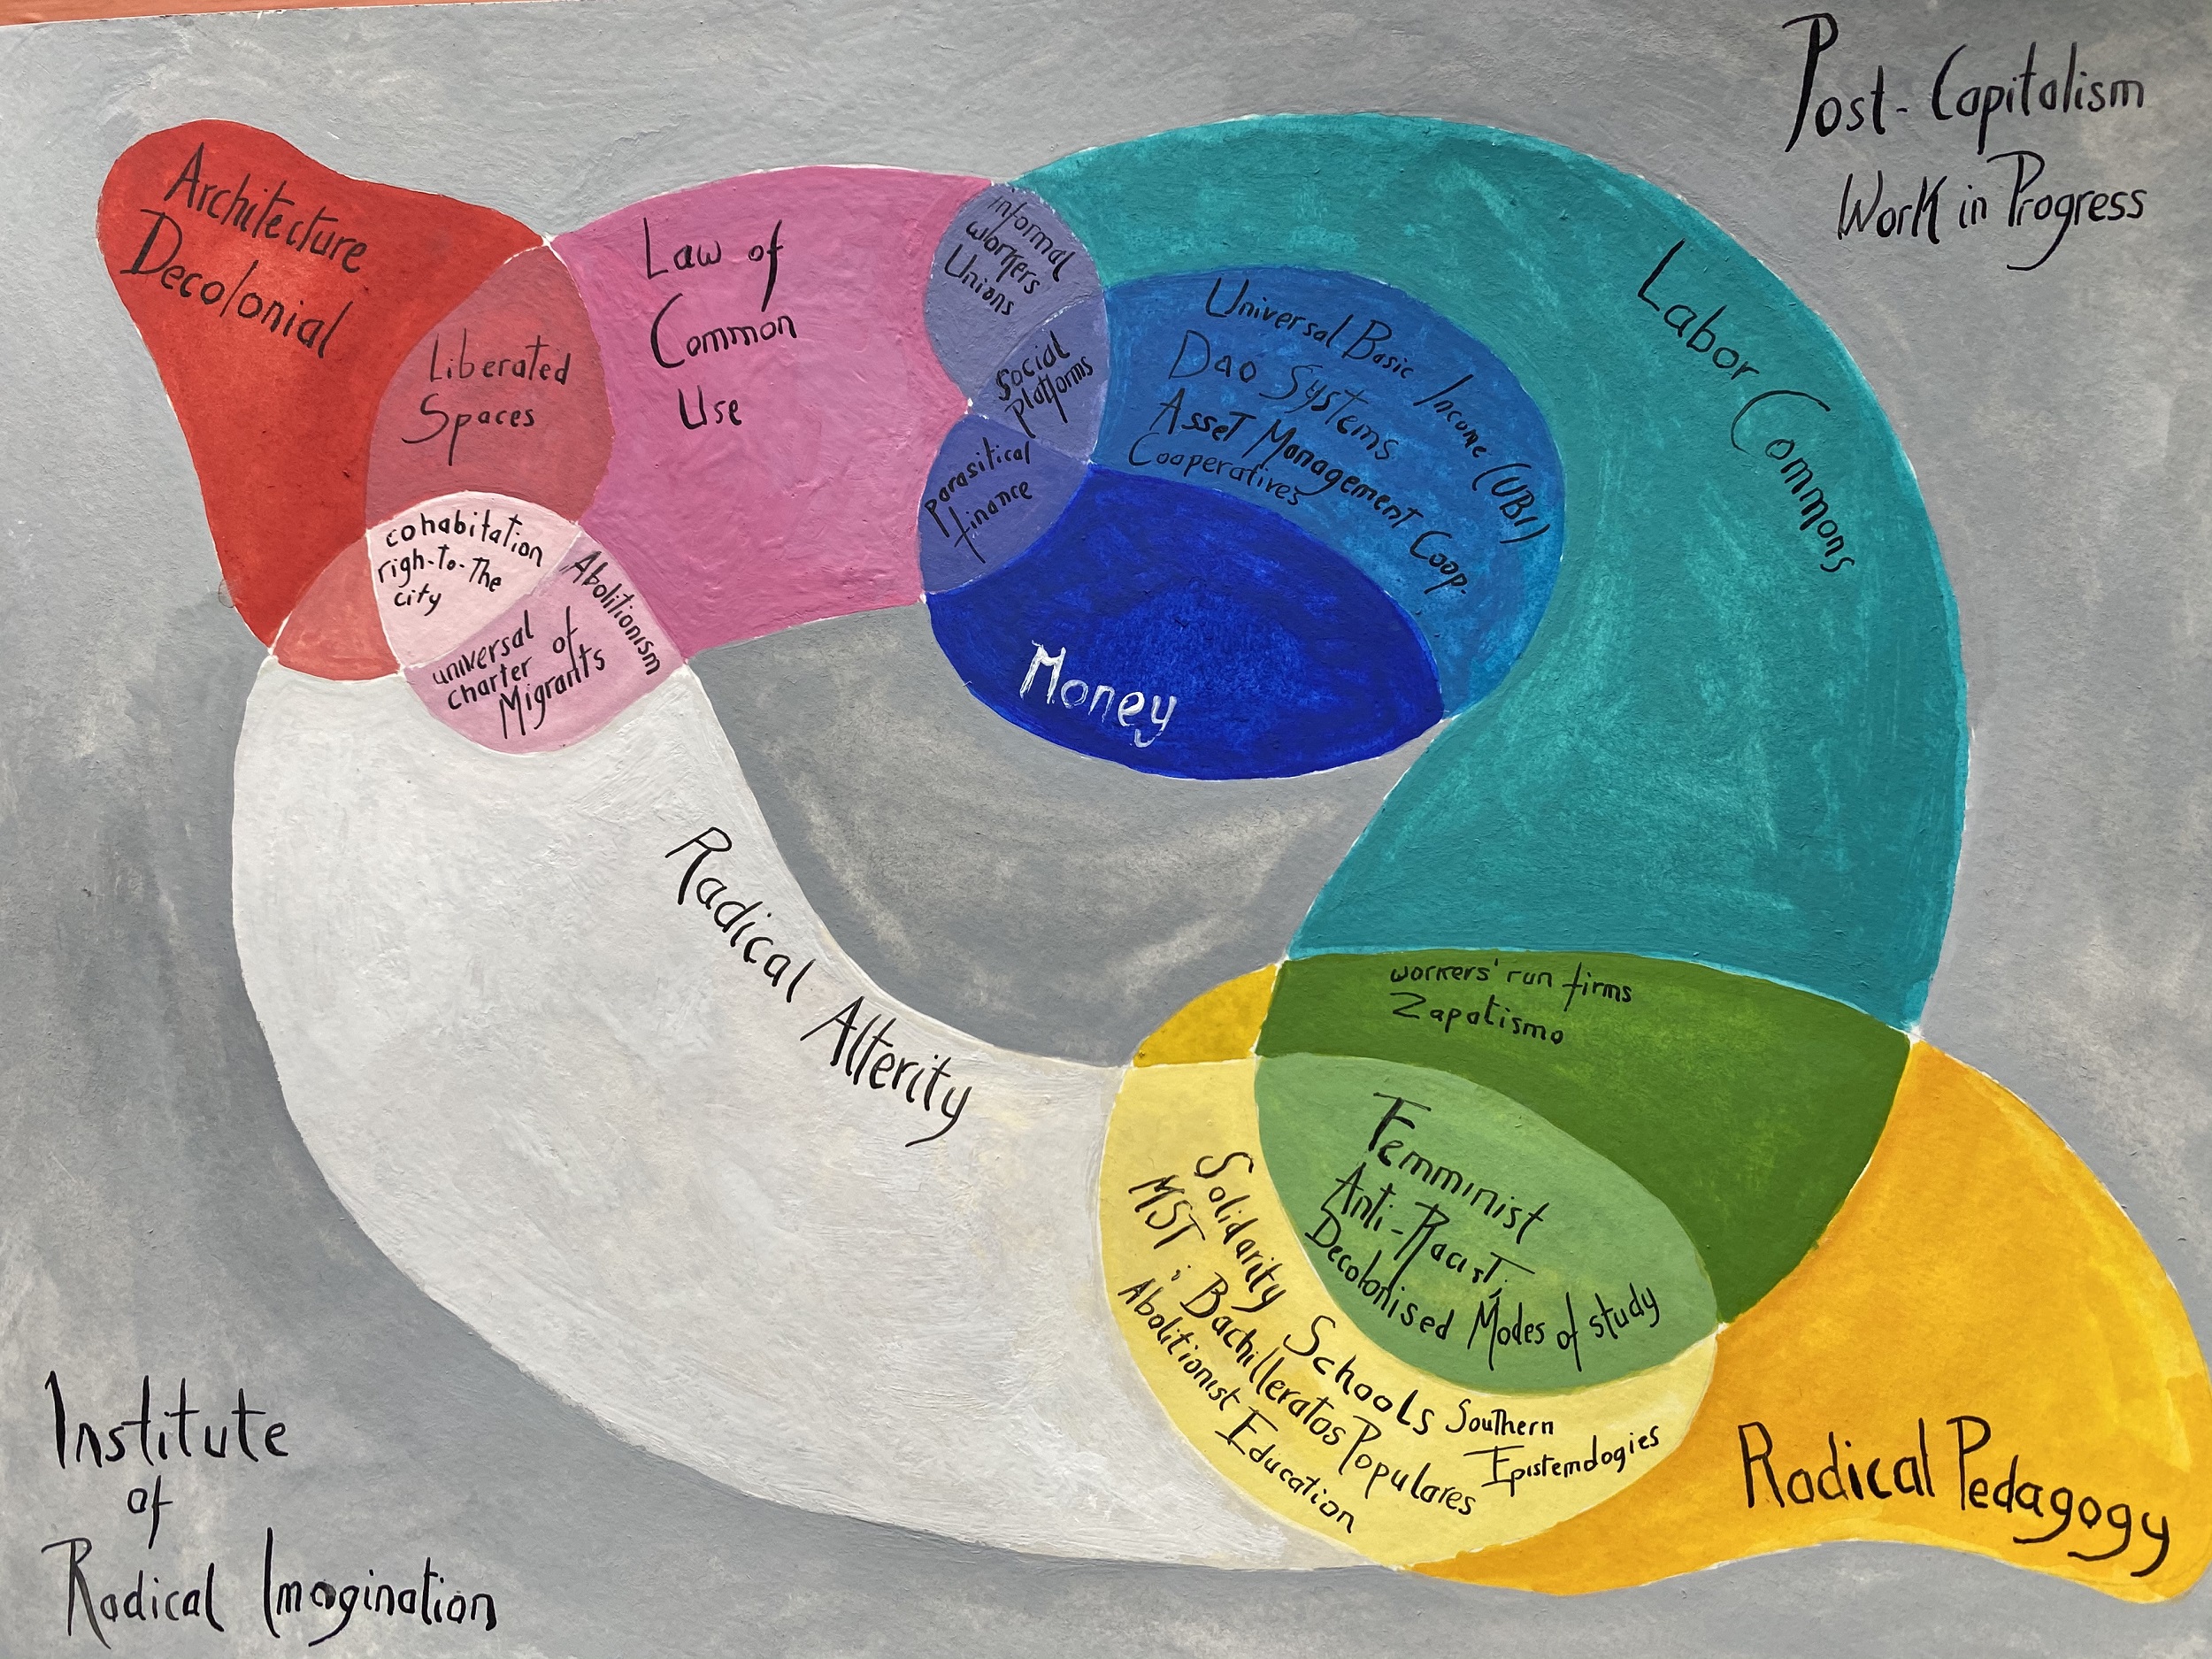 Post-Capitalism
Work in Progress
Architecture
Decolonial
Liberated
Spaces
Law of
Common
Use
Informal
workers
Unions
Social
Platforms
Parasitical
finance
Universal Basic Income (UBI)
Dao Systems
Asset Management Coop.
Cooperatives
Labor Commons
Money
cohabitation
righ-to-the
city
Abolitionism
universal
charter of
Migrants
Radical Alterity
workers' run firms
Zapatismo
Femminist
Anti-Racist,
Decolonised Modes of study
Solidarity Schools
MST ; Bachilleratos Populares
Abolitionist Education
Southern
Epistemologies
Radical Pedagogy
Institute
of
Radical Imagination